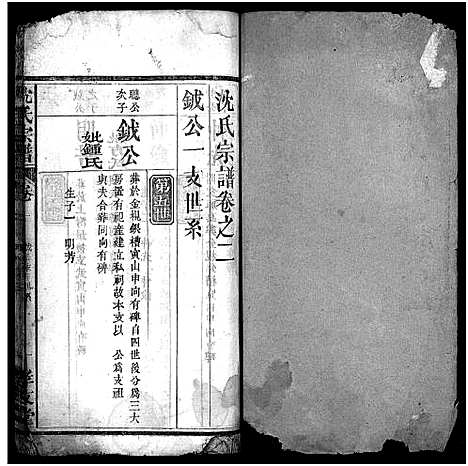 沈氏宗譜卷之二
鉞公一支世系
第五世
聽公
次子
鉞公
妣鍾氏
葬於金規銀槽寅山申向有碑自四世後分為三大
房鉞有祀產建立私祠故本支以 公為支祖
與夫合葬同向有碑
生子一 明芳
沈氏宗譜